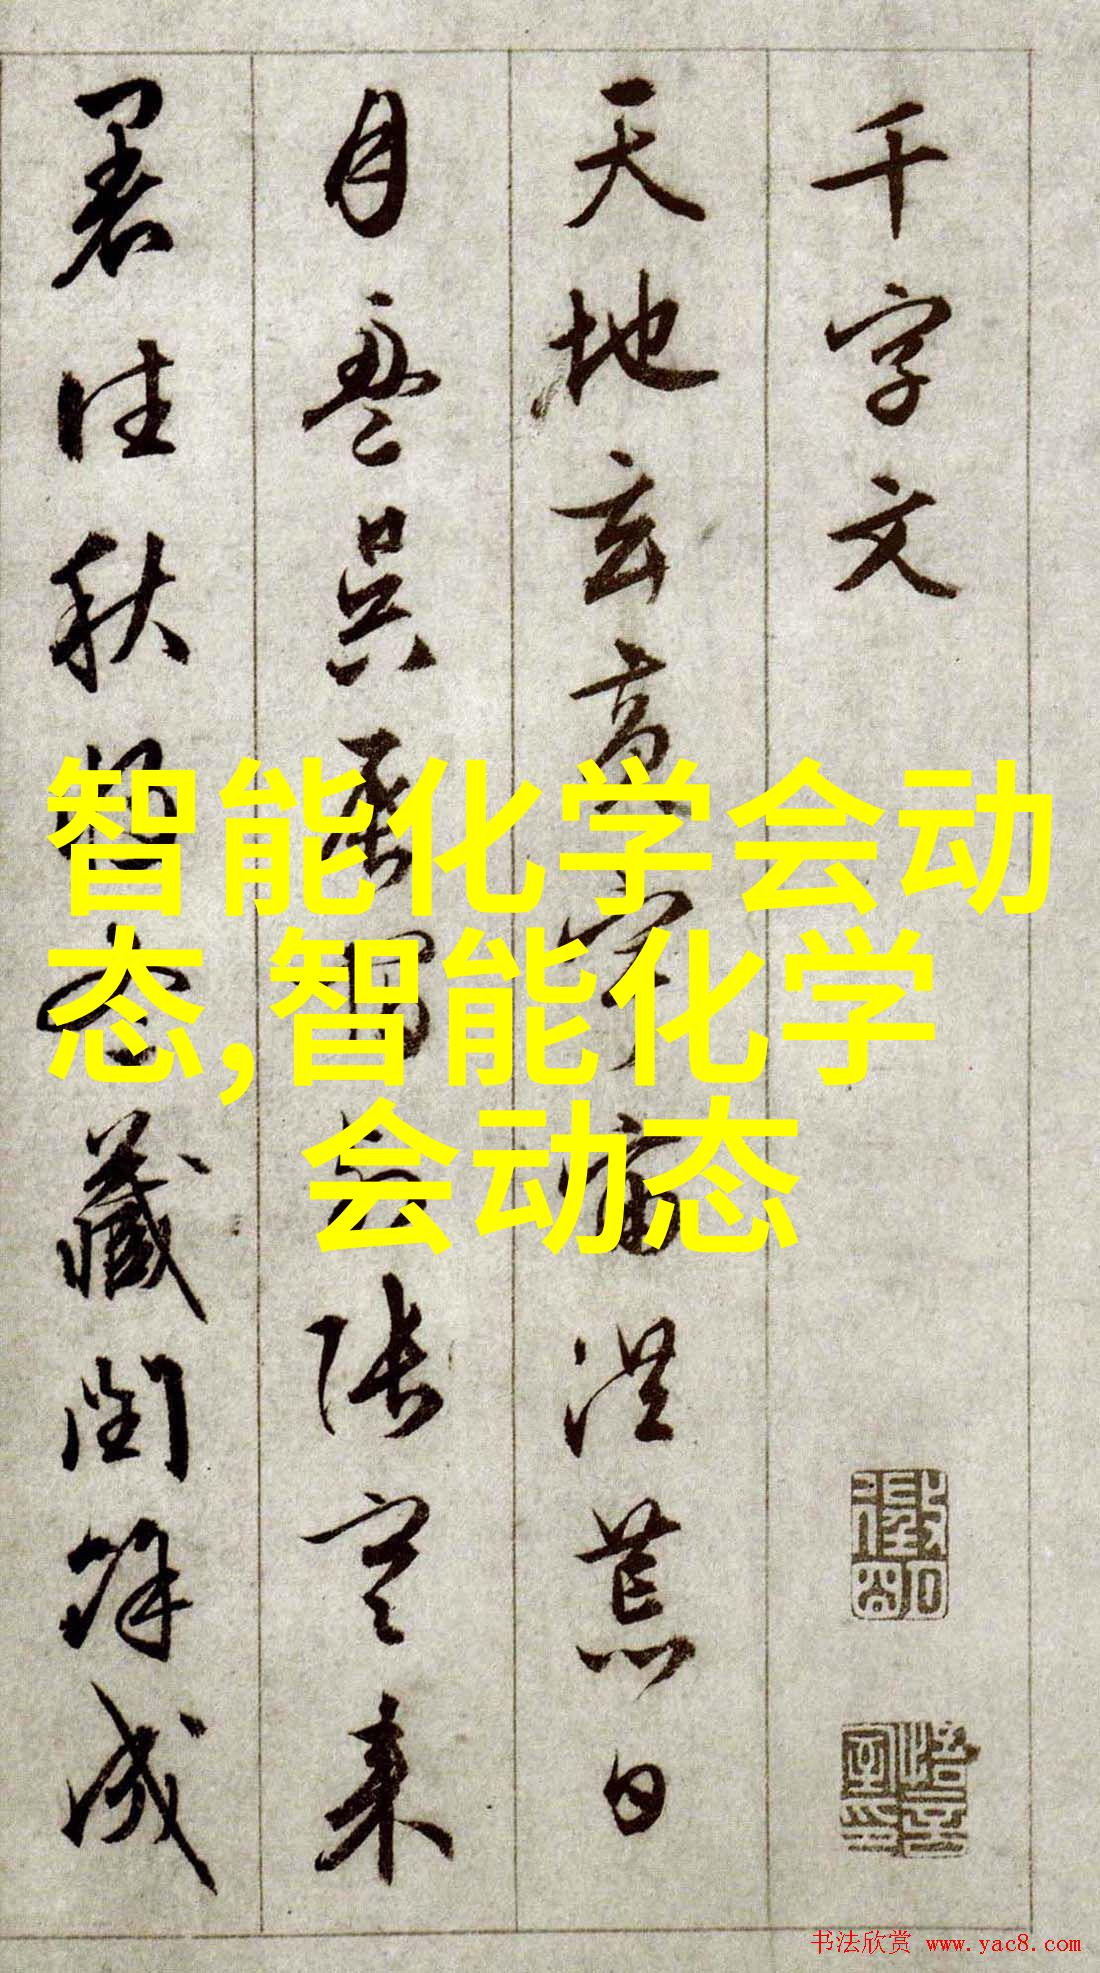 千字文
天地玄黄宇宙洪荒日
月盈昃辰宿列張寒来
暑往秋收冬藏閏餘成
智能化学会动
态,智能化学
会动态
书法欣赏 www.yac8.com